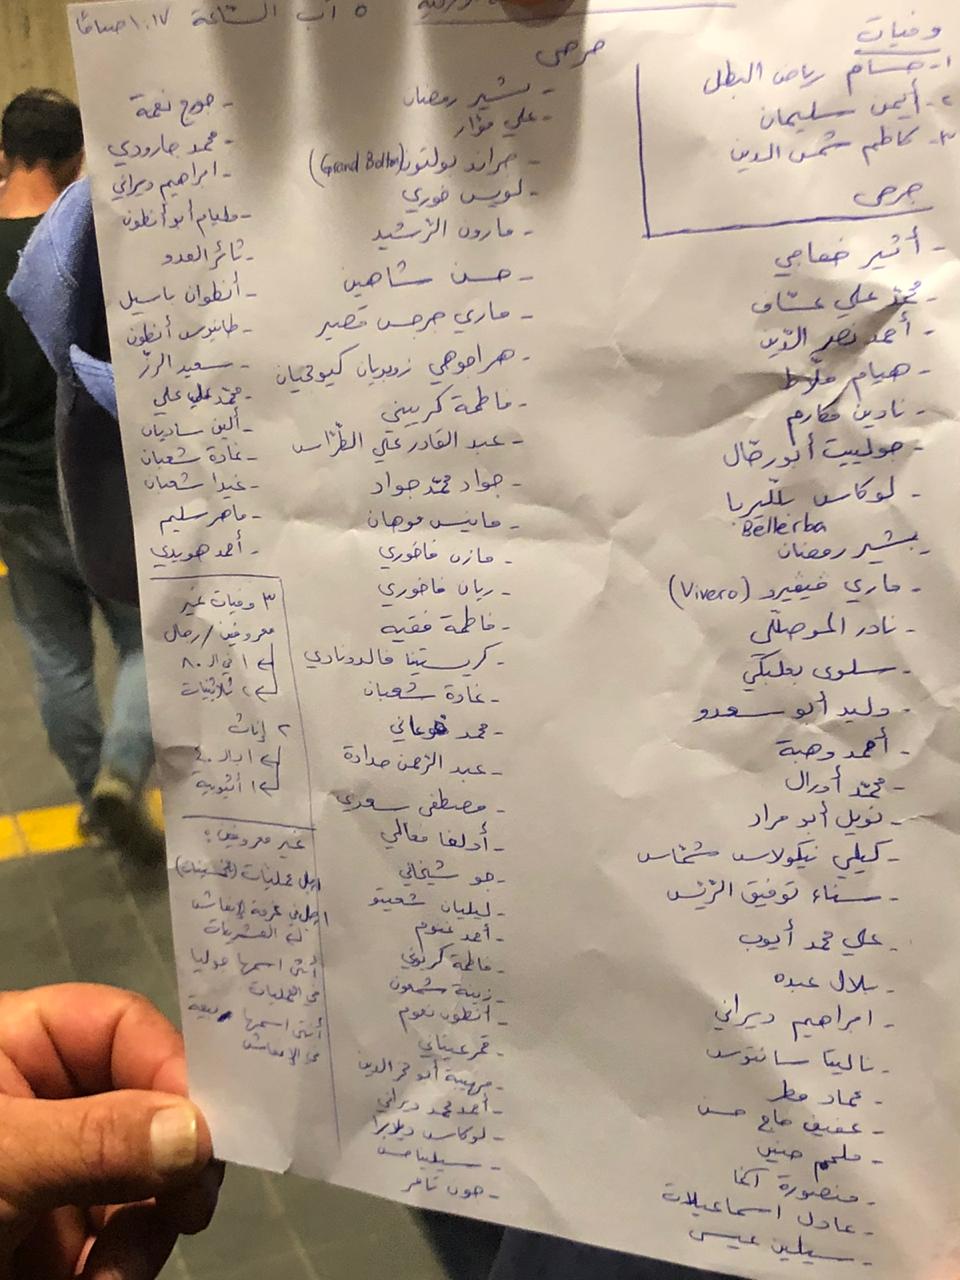 ٥ آب الساعة ١٠.١٧ صباحًا
وفيات
١- حسام رياض البطل
٢- أيمن سليمان
٣- كاظم شمس الدين
جرحى
- أثير خفاجي
- محمّد علي عسّاف
- أحمد نصر الدّين
- هيام ملّاط
- نادين مكارم
- جولييت أبو رحّال
- لوكاس بلّليربا
Bellerba
- بشير رمضان
- ماري فيفيرو (Vivero)
- نادر الموصلّي
- سلوى بعلبكي
- وليد أبو سعدو
- أحمد وهبة
- محمّد أورال
- نويل أبو مراد
- كيلي نيكولاس شمّاس
- سناء توفيق الرّيّس
- علي محمد أيوب
- بلال عبده
- ابراهيم ديراني
- ناليتا سانتوس
- عماد مطر
- عفيف حاج حسن
- ملحم حنين
- منصورة آغا
- عادل اسماعيلات
- سيلين عيسى
جرحى
- بشير رمضان
- علي فوّاز
- جراند بولتون (Grand Bolton)
- لويس خوري
- مارون الرّشيد
- حسن شاهين
- ماري جرجس قصير
- هراجوهي زوبويان كيوفجيان
- فاطمة كريبني
- عبد القادر علي الطرّاس
- جواد محمّد جواد
- مانيس موهان
- مازن فاخوري
- ريان فاخوري
- فاطمة فقيه
- كريستينا فالدونادي
- غادة شعبان
- محمد هوعاني
- عبد الرّحمن حدادة
- مصطفى سعدي
- أولغا معالي
- جو شيخاني
- ليليان شعيتو
- أحمد غنوم
- فاطمة كربوني
- زينة شمعون
- أنطون نعوم
- قمر عيتاني
- مهيبة أبو فخر الدين
- أحمد محمد ديراني
- لوكاس ديلابرا
- سيليا حسن
- جون تامر
- جورج نعمة
- محمد جارودي
- ابراهيم ديراني
- وليام أبو أنطون
- ثائر العدو
- أنطوان باسيل
- طانيوس أنطون
- سعيد الرزّ
- محمّد علي علي
- ألين ساديان
- غادة شعبان
- غيدا شعبان
- ماهر سليم
- أحمد هويدي
٣ وفيات غير
معروفين / رجال
١ في الـ ٨٠
٢ ثلاثينات
٢ إناث
١ بالـ ٤٠
١ أثيوبية
غير معروفين:
رجل عمليات (الخمسينات)
رجل في غرفة الإنعاش
في العشرينات
أنثى اسمها جوليا
في العمليات
أنثى اسمها ربيعة
في الإنعاش